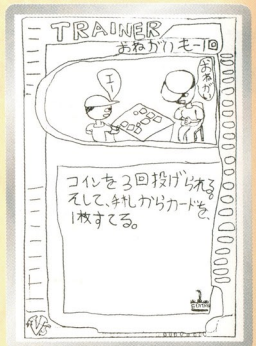 TRAINER
おねがいもー1回
エ
おねがい
コインを3回投げられる
そして、手札からカードを、
1枚すてる。